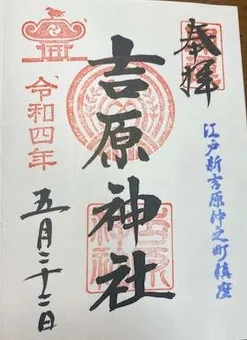 奉拝
江戸新吉原仲之町鎮座
吉原神社
令和四年
五月二十二日